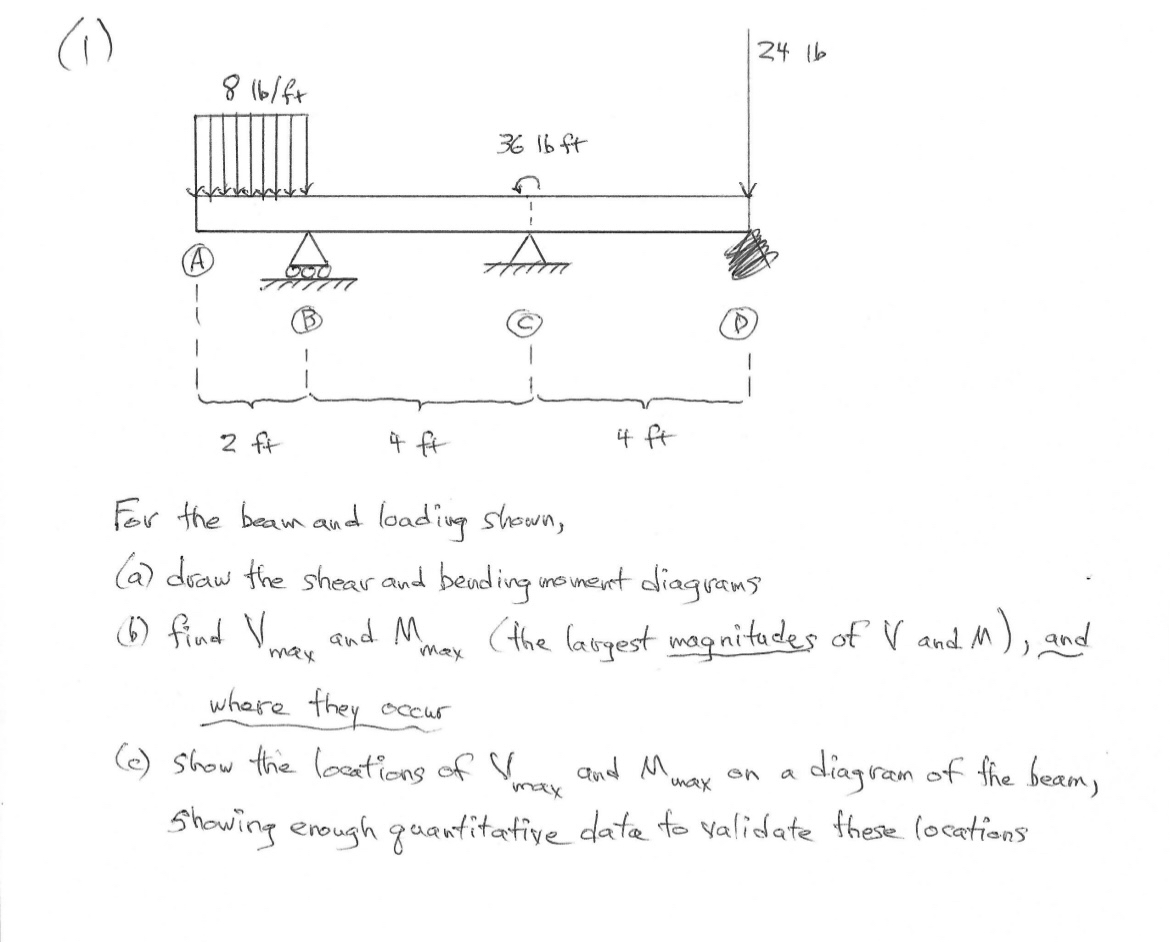 (1)
24 lb
8 lb/ft
36 lb ft
A
B
C
D
2 ft
4 ft
4 ft
For the beam and loading shown,
(a) draw the shear and bending moment diagrams
(b) find Vmax and Mmax (the largest magnitudes of V and M), and
where they occur
(c) show the locations of Vmax and Mmax on a diagram of the beam,
showing enough quantitative data to validate these locations